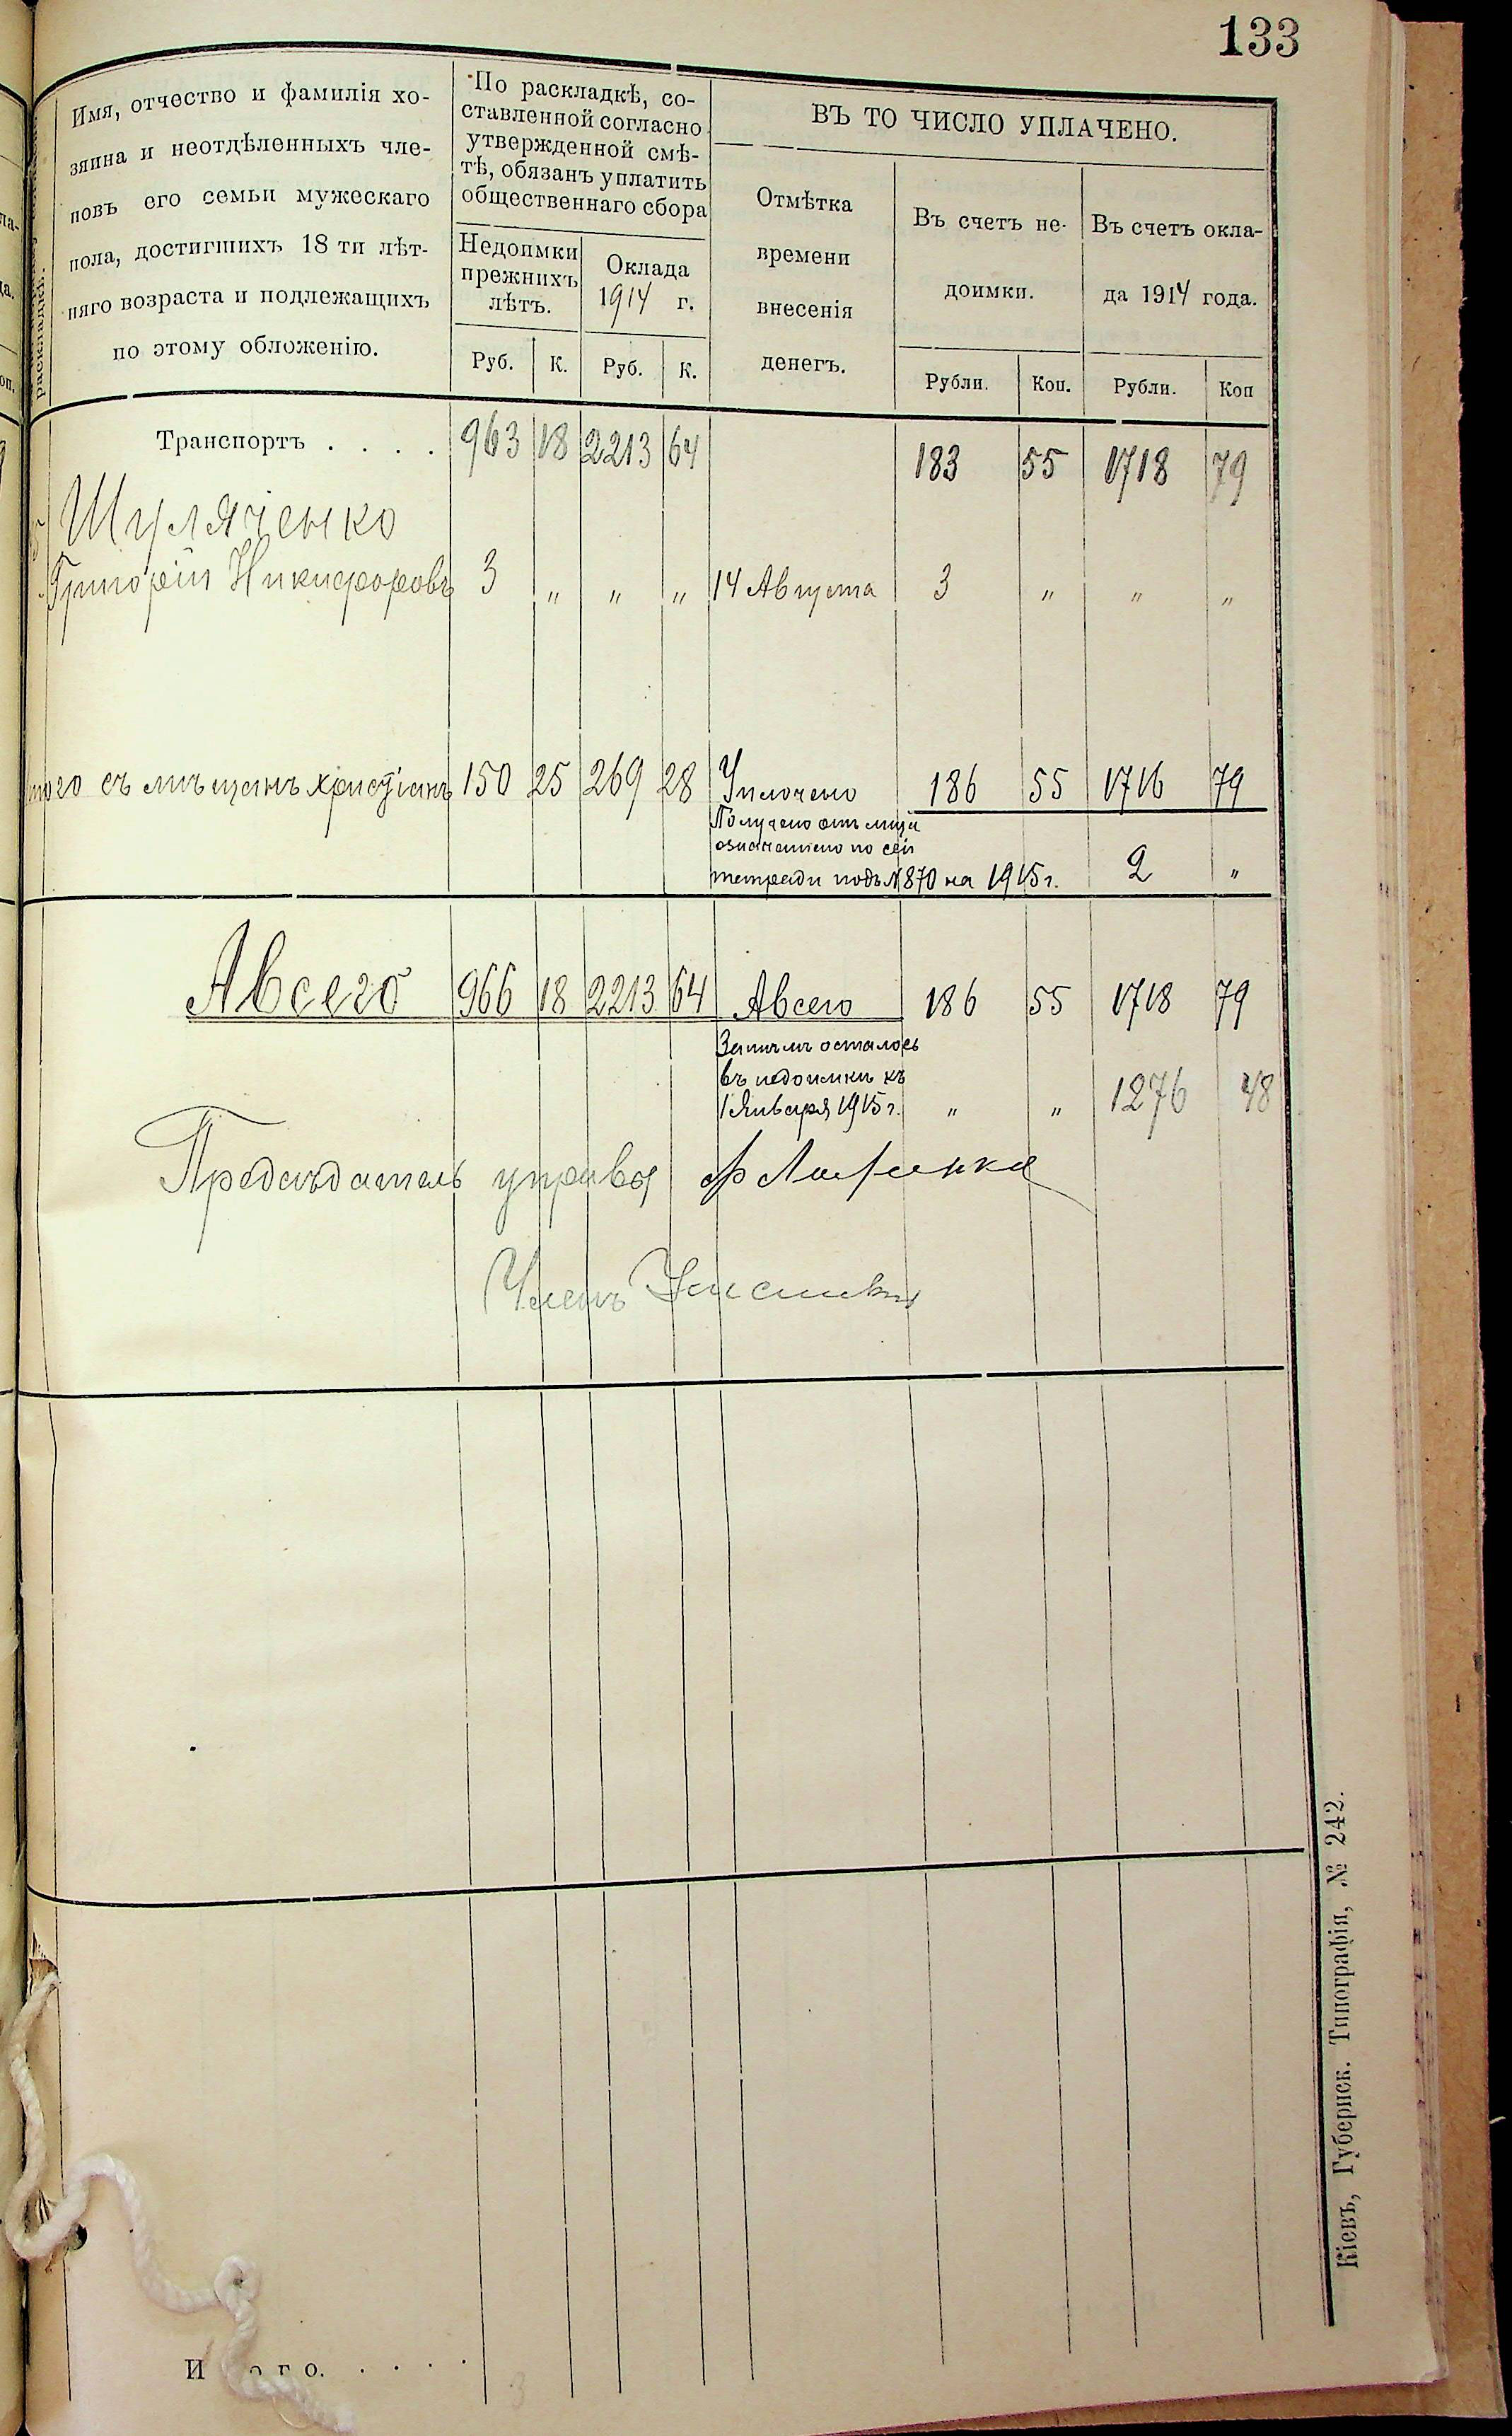 133
Имя, отчество и фамилія хо-
зяина и неотдѣленныхъ чле-
новъ его семьи мужескаго
пола, достигшихъ 18 ти лѣт-
няго возраста и подлежащихъ
по этому обложенію.
По раскладкѣ, со-
ставленной согласно
утвержденной смѣ-
тѣ, обязанъ уплатить
общественнаго сбора
Недоимки
прежнихъ
лѣтъ.
Оклада
1914 г.
Руб. К. Руб. К.
ВЪ ТО ЧИСЛО УПЛАЧЕНО.
Отмѣтка
времени
внесенія
денегъ.
Въ счетъ не-
доимки.
Въ счетъ окла-
да 1914 года.
Рубли. Коп. Рубли. Коп
Транспортъ . . . . 963 18 2213 64 183 55 1718 79
Шуляченко
Григорій Никифоровъ 3 " " " 14 Августа 3 " " "
того съ мѣщанъ христіанъ 150 25 269 28 Уплочено 186 55 1716 79
Получено отъ лица
означеннаго по сей
тетради подъ № 870 на 1915 г. 2 "
Авсего 966 18 2213 64 Авсего 186 55 1718 79
Затѣмъ осталось
въ недоимкѣ къ
1 Января 1915 г. " " 1276 48
Предсѣдатель управы
Членъ
Кіевъ, Губернск. Типографія, № 242.